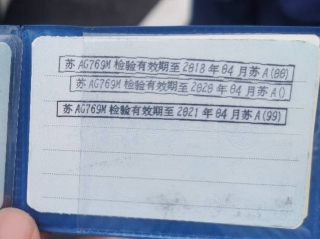 苏AG769M检验有效期至2018年04月苏A(00)
苏AG769M检验有效期至2020年04月苏A()
苏AG769M检验有效期至2021年04月苏A(99)